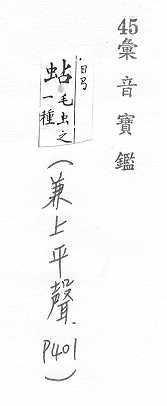 45彙音寶鑑
蛅毛虫之一種
(兼上平聲.P401)